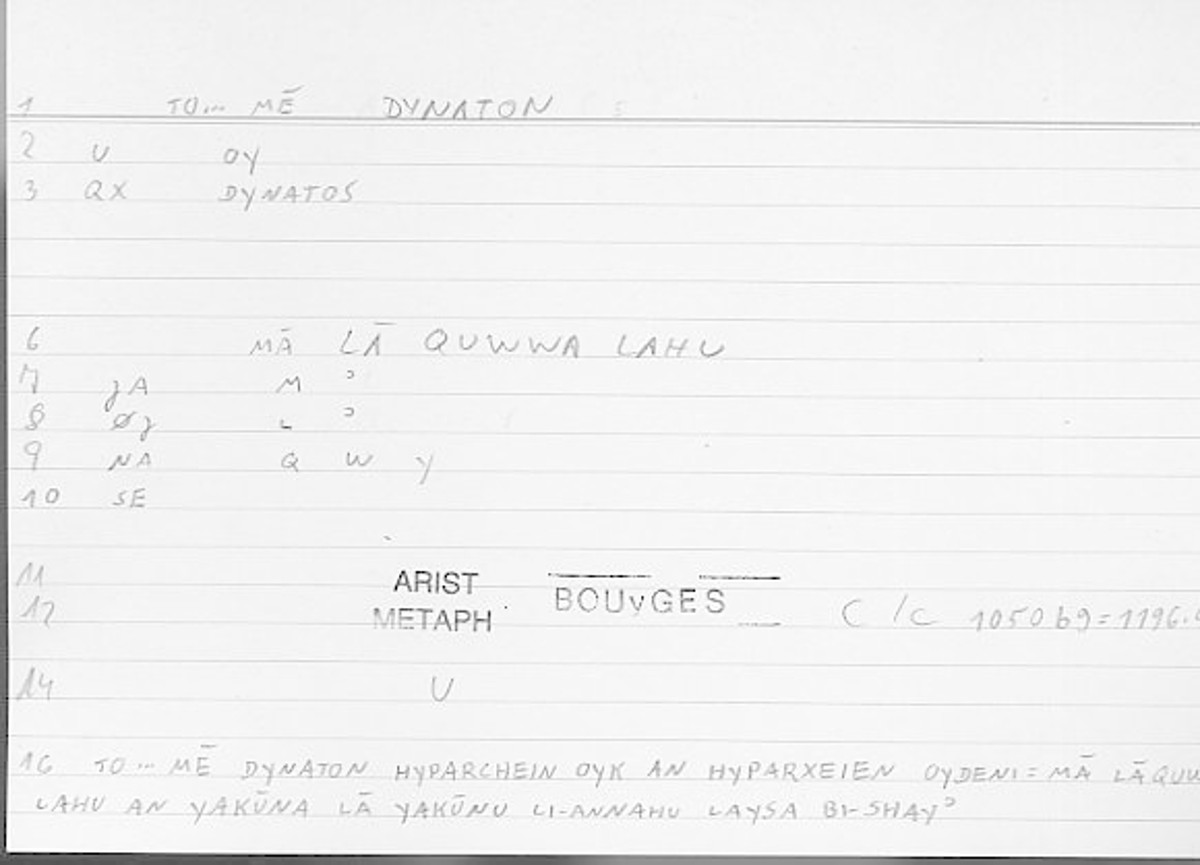 1 TO... MĒ DYNATON
2 U OY
3 QX DYNATOS
6 MĀ LĀ QUWWA LAHU
7 JA M ʾ
8 ØJ L ʾ
9 NA Q W Y
10 SE
11 ARIST
12 METAPH. BOUyGES C /C 1050b9=1196.
14 U
16 TO... MĒ DYNATON HYPARCHEIN OYK AN HYPARXEIEN OYDENI = MĀ LĀ QUW
LAHU AN YAKŪNA LĀ YAKŪNU LI-ANNAHU LAYSA BI-SHAYʾ